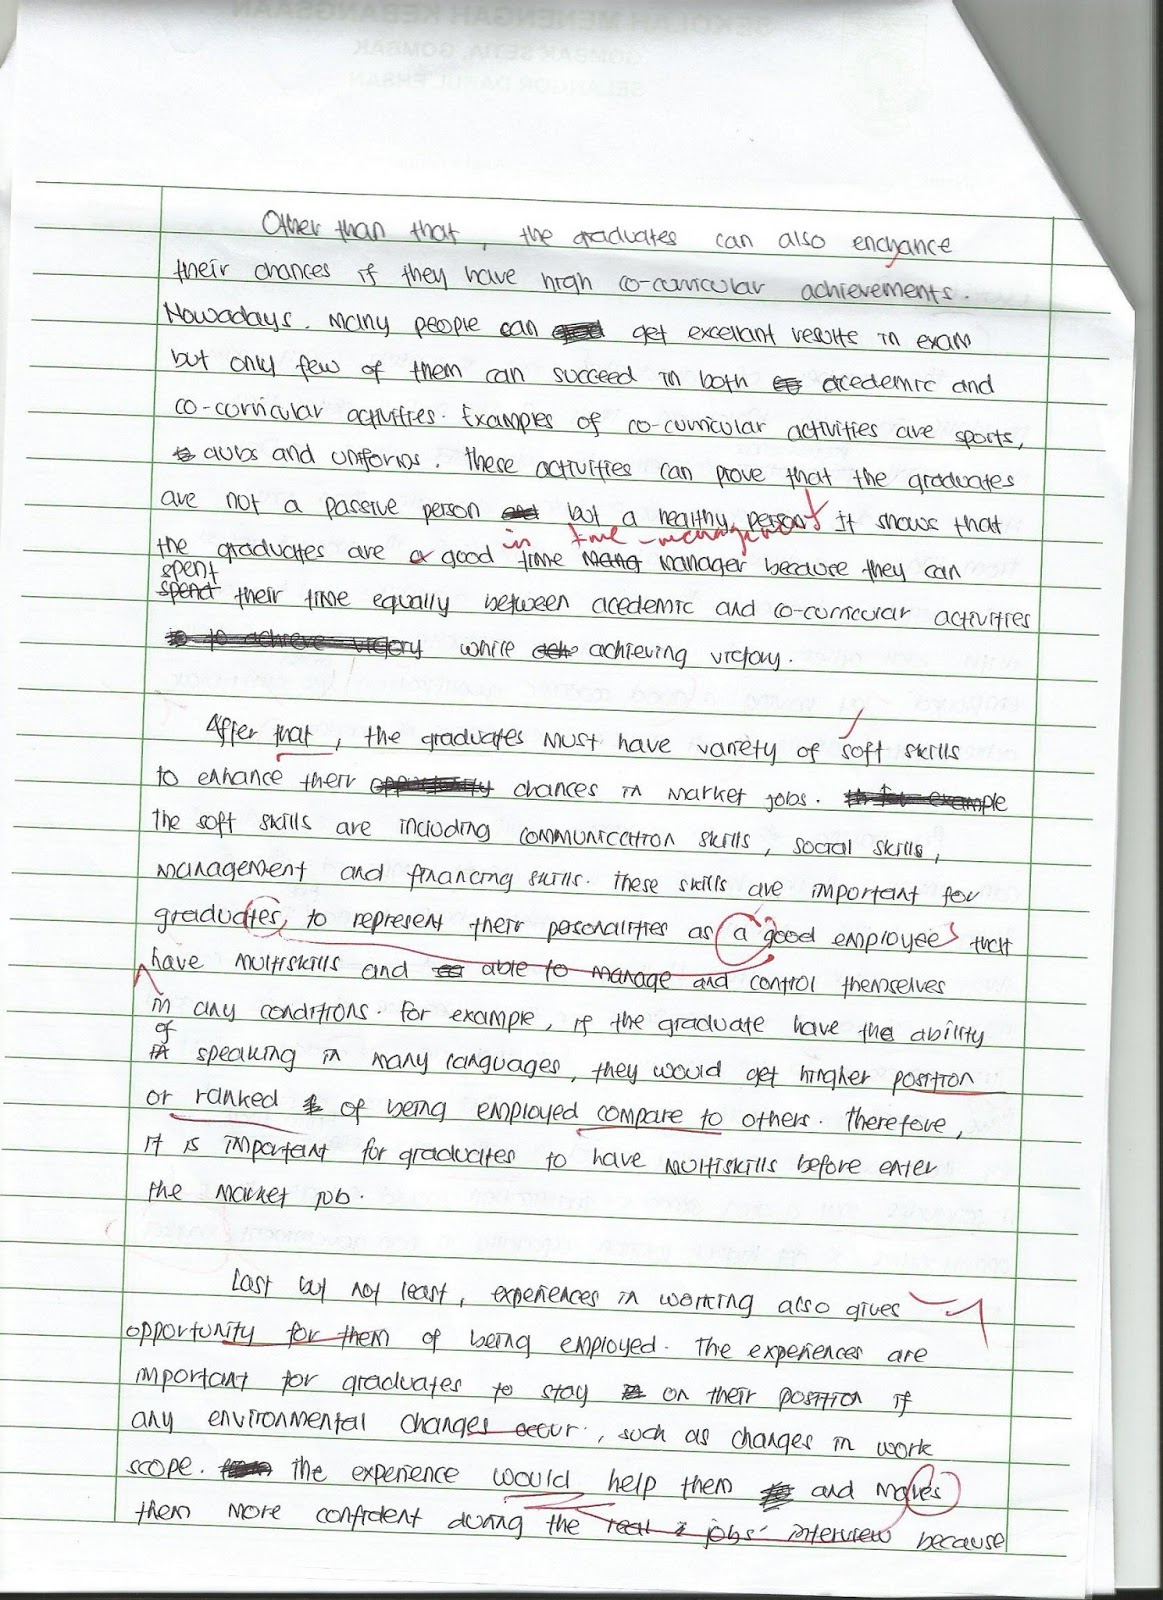 Other than that, the graduates can also enchance
their chances if they have high co-curricular achievements.
Nowadays. Many people can get excellant results in exam
but only few of them can succeed in both acedemic and
co-curricular activities. Examples of co-curricular activities are sports,
clubs and uniforms. These activities can prove that the graduates
are not a passive person but a healthy person. It shows that
in time-management
the graduates are a good time manager because they can
spent
spend their time equally between acedemic and co-curricular activities
to achieve victory while achieving victory.
After that, the graduates must have variety of soft skills
to enhance their opportunity chances in market jobs. example
The soft skills are including communication skills, social skills,
management and financing skills. These skills are important for
graduates, to represent their personalities as a good employee that
have multiskills and able to manage and control themselves
in any conditions. For example, if the graduate have the ability
of
in speaking in many languages, they would get higher position
or ranked of being employed compare to others. Therefore,
it is important for graduates to have multiskills before enter
the market job.
Last but not least, experiences in working also gives
opportunity for them of being employed. The experiences are
important for graduates to stay on their position if
any environmental changes occur, such as changes in work
scope. The experience would help them and makes
them more confident during the real jobs' interview because